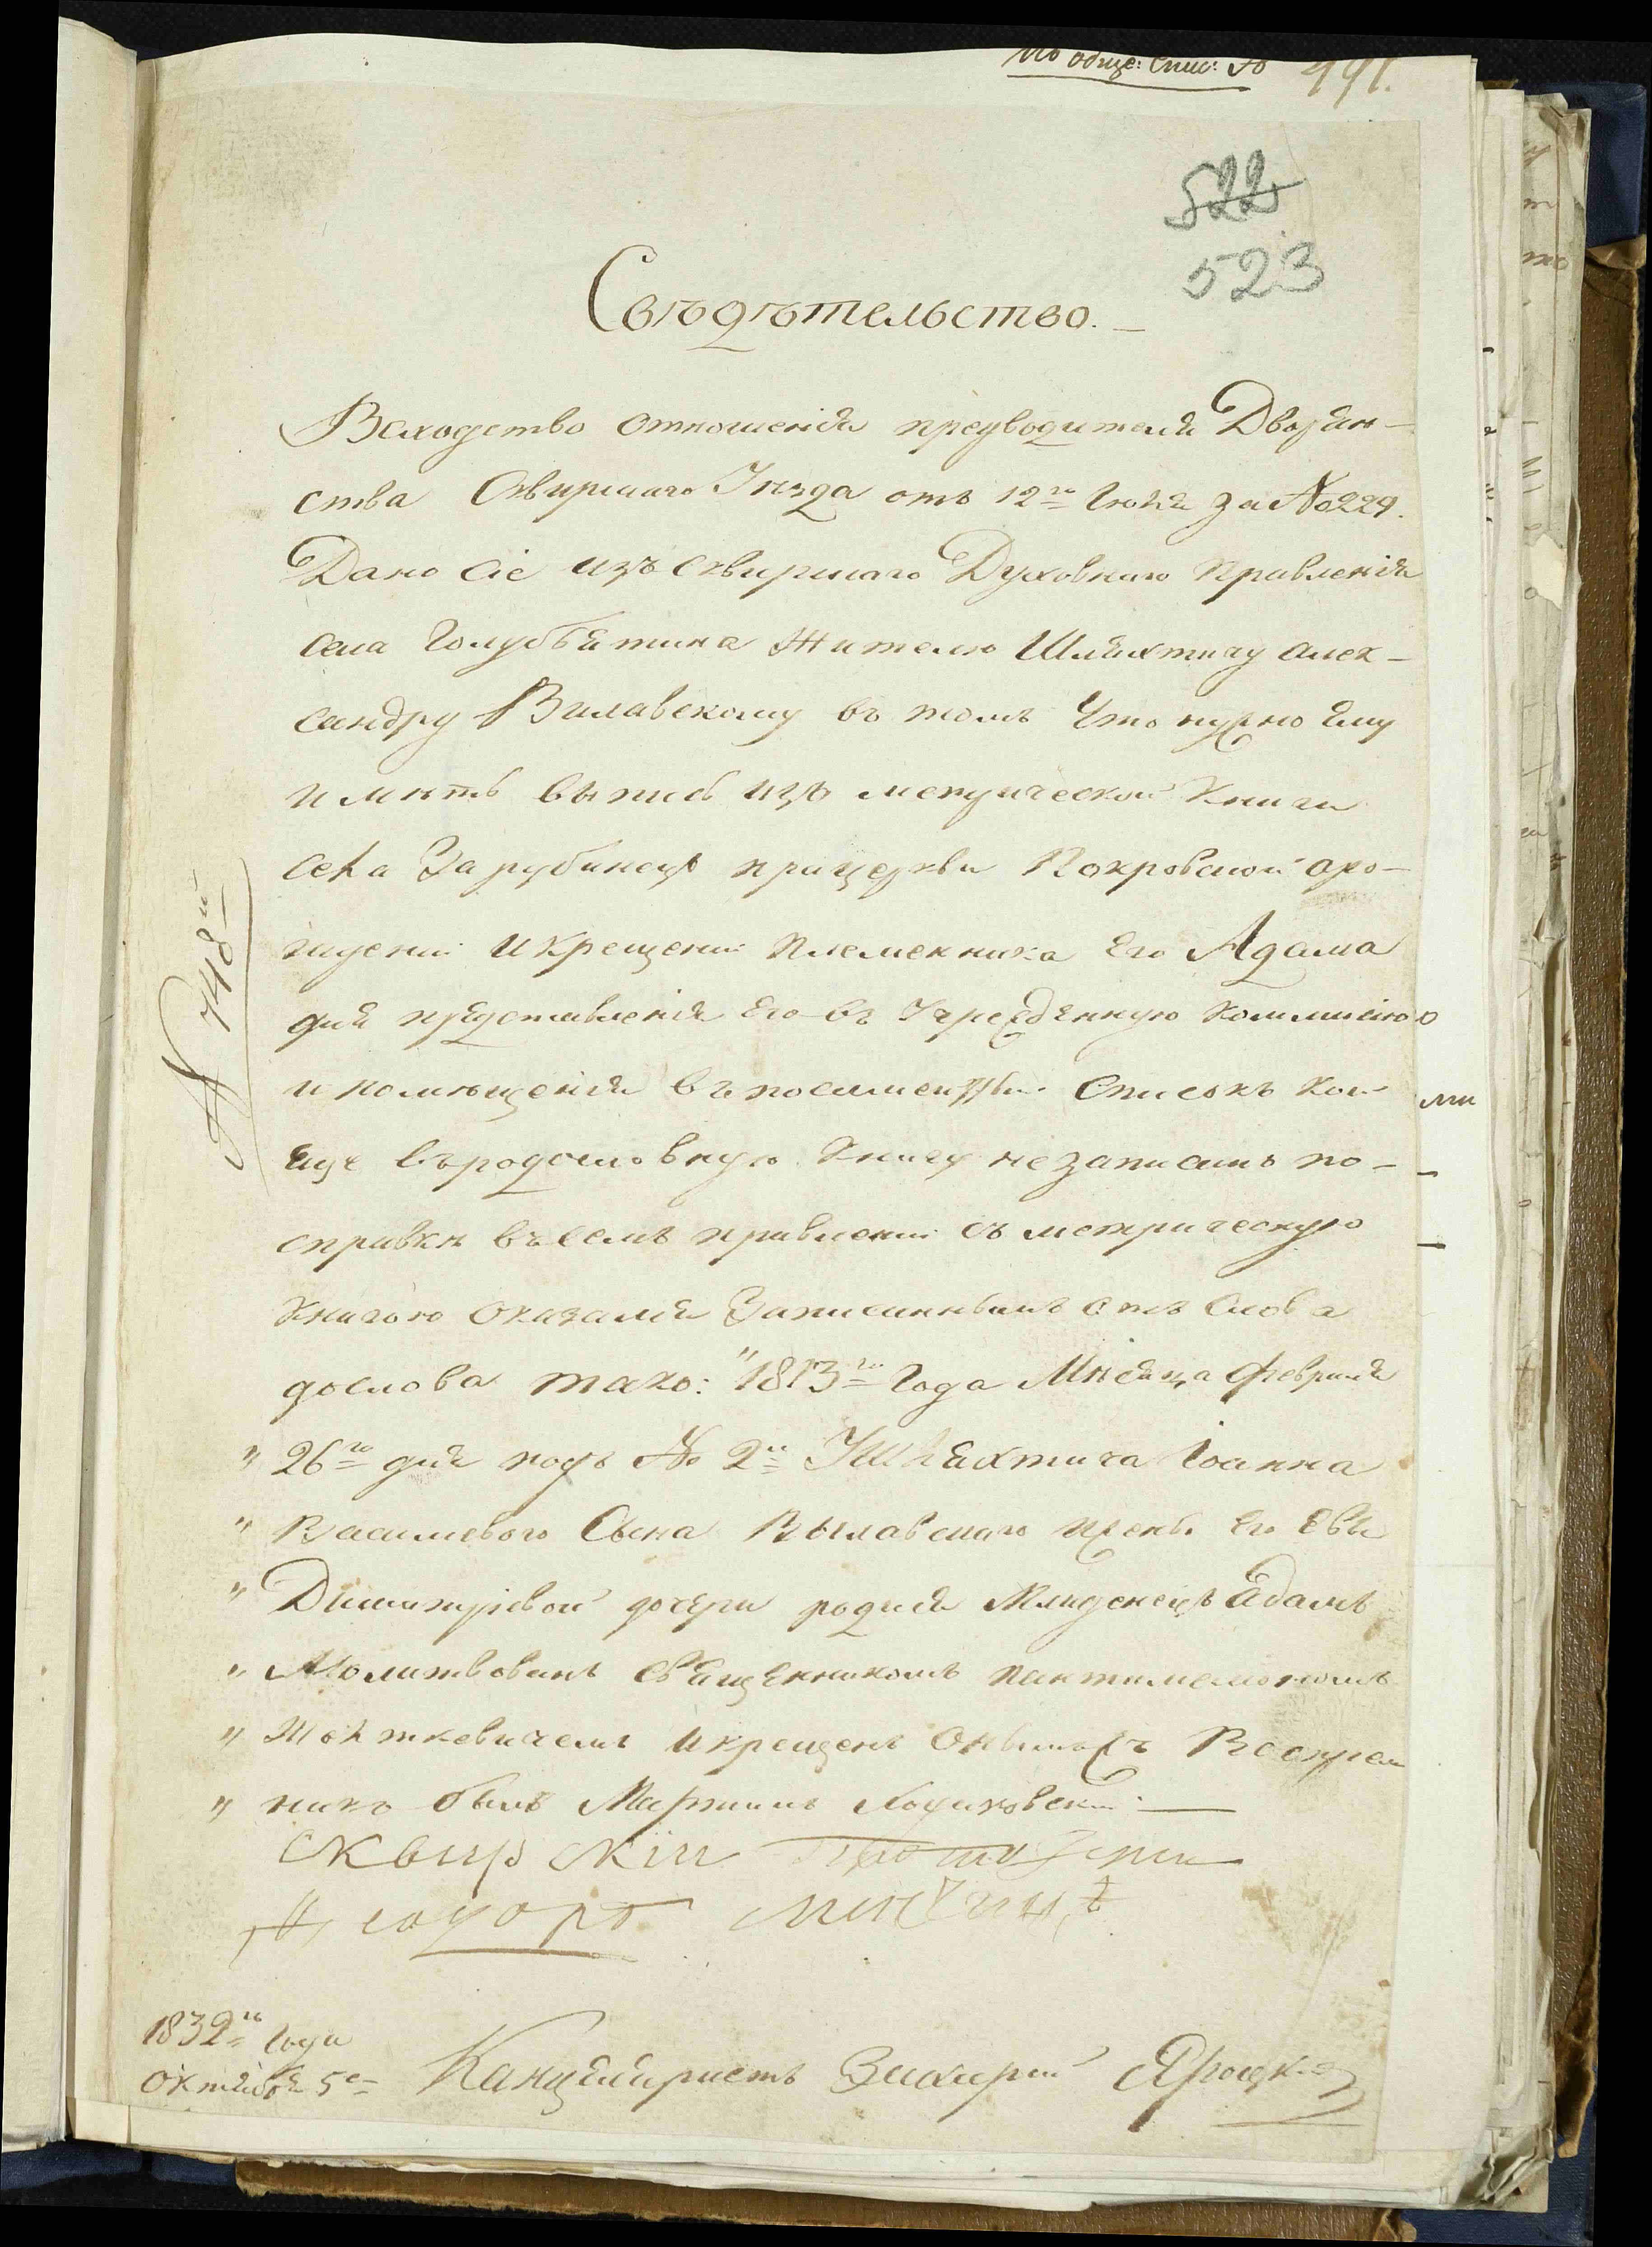 По обще: Спис: № 491.
522
523
Свѣдѣтельство.
Всходство отношенія предводителя Дворян-
ства Сквирскаго Уѣзда отъ 12го Іюля за № 229.
Дано сіе изъ Сквирскаго Духовнаго Правленія
села Голубятина Жителю Шляхтичу Алек-
сандру Вилавскому въ томъ Что нужно Ему
имѣть выпись изъ метрической Книги
села Зарубинецъ прицеркви Покровской оро-
жденіи икрещеніи племенника Его Адама
для представленія Его въ Учрежденную Коммисію
и помѣщенія въ посемейный Списокъ кой
еще въродословную Книгу незаписанъ по-
справкѣ въсемъ правленіи съ метрическую
Книгою оказался Записаннымъ отъ Слова
дослова тако: "1813го Года Мѣсяца Февраля
" 26го дня подъ № 2й У Шляхтича Іоанна
" Васильевого Сына Вылавскаго жены Его Евы
" Димитріевой дочери родился Младенецъ Адамъ
" Молитвованъ Священникомъ Пантилемономъ
" Желткевичемъ икрещенъ Онымъжъ Воспрем
" никъ былъ Мартинъ Ходаковскій.
Сквирскій Протоіерей
Ѳеодоръ
№ 748й
1832го Года
Октября 5е
Канцеляристъ Захарій Яроцкій